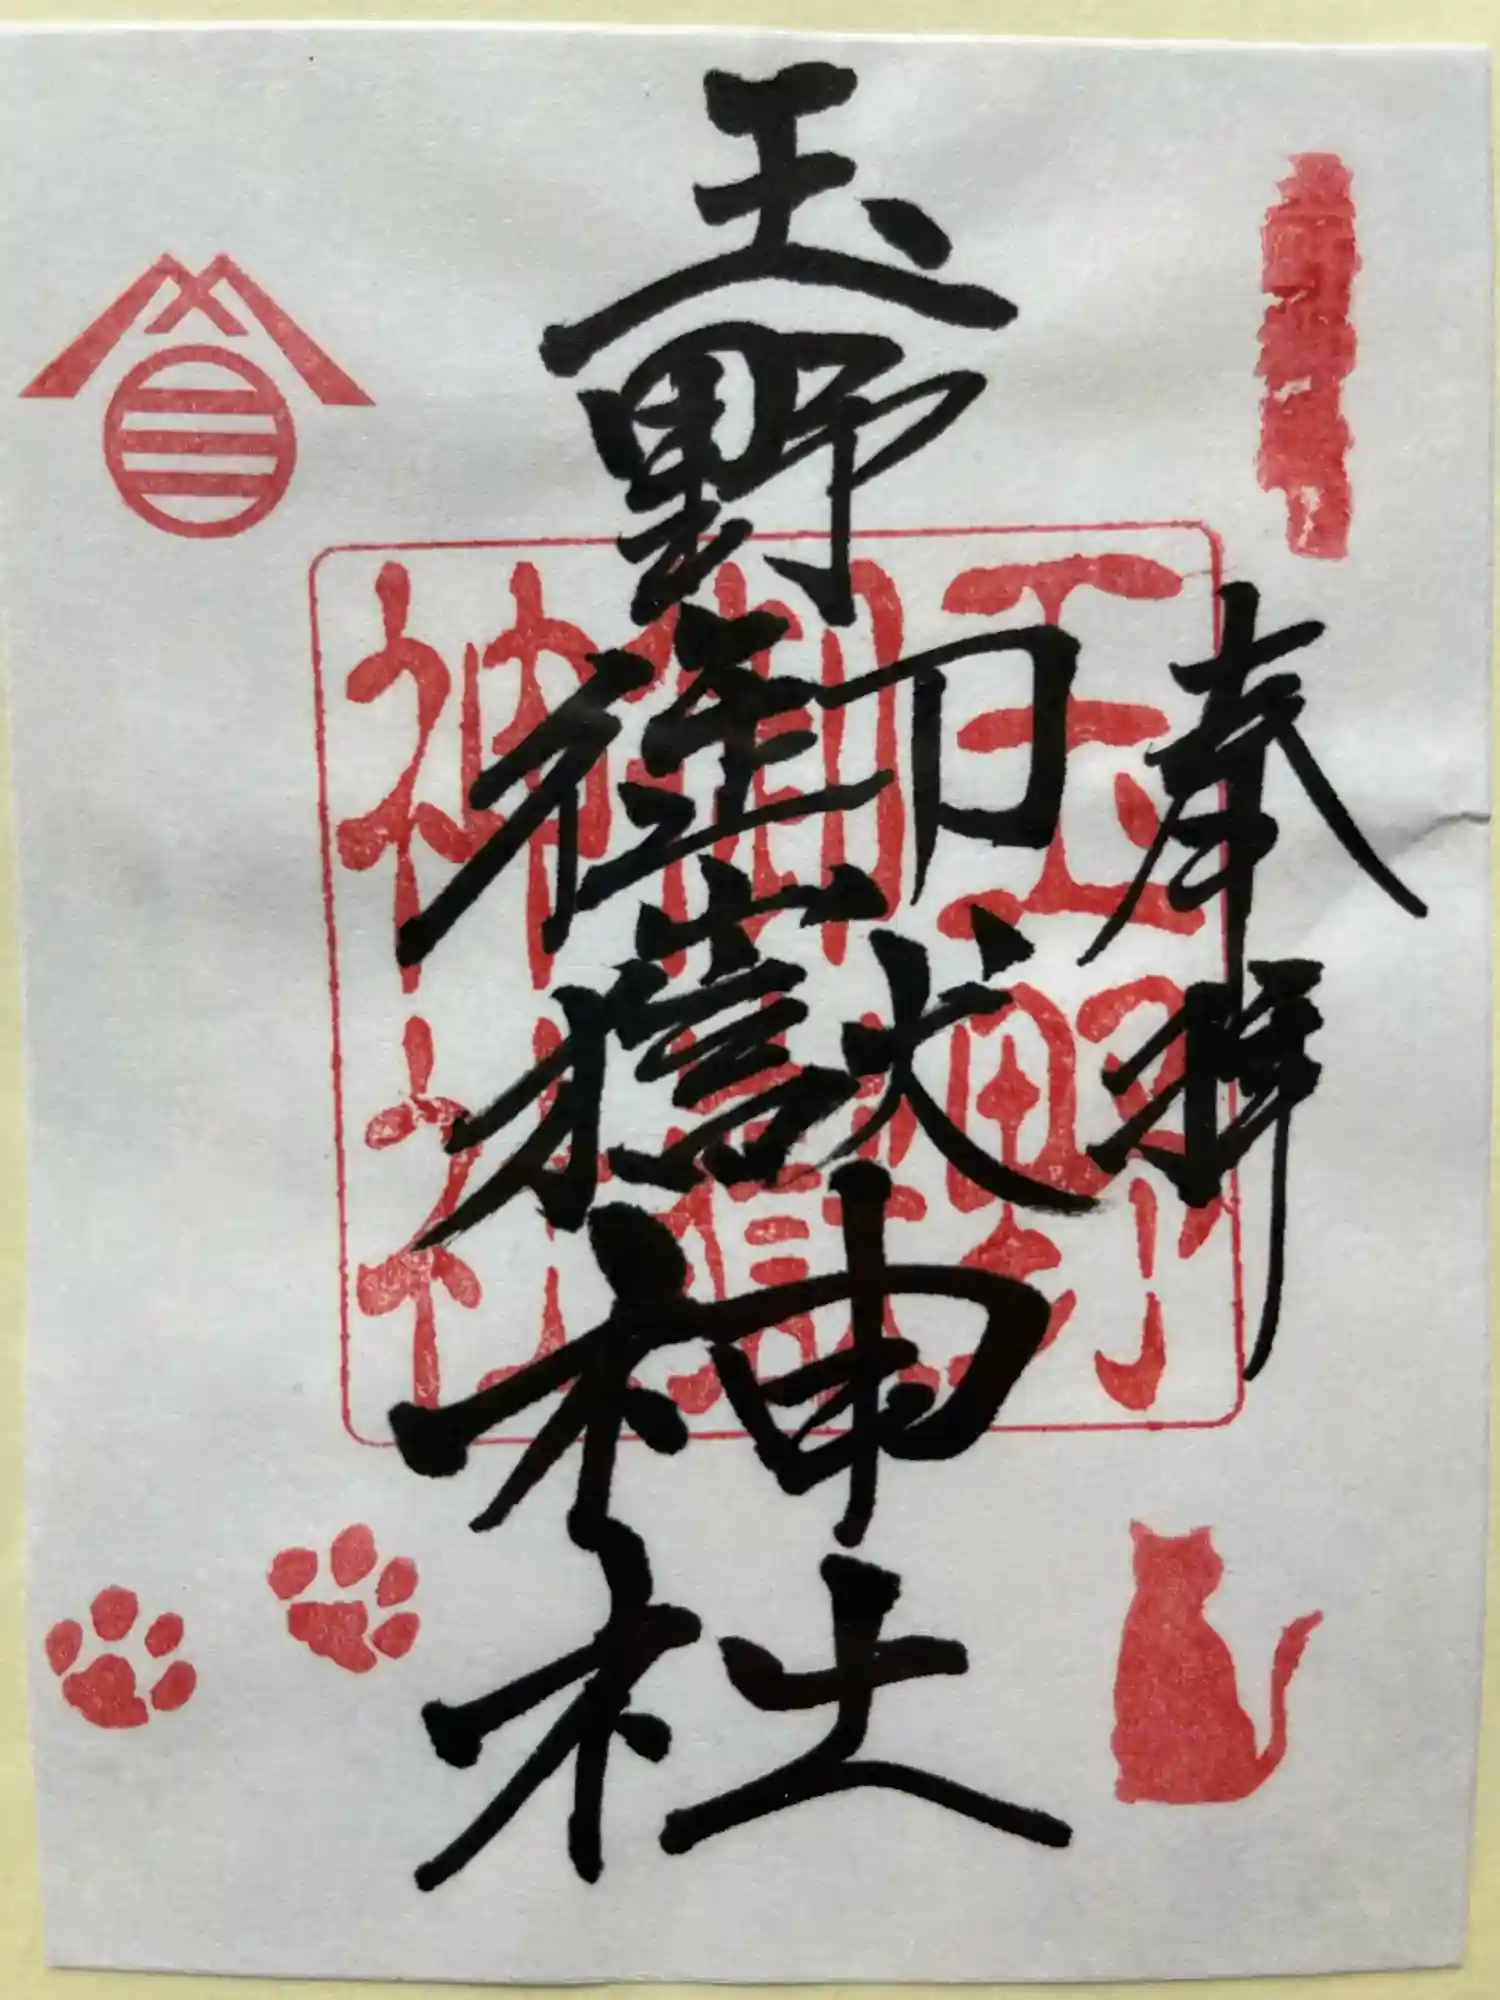 奉拝
玉野御嶽神社
玉野
御嶽
神社